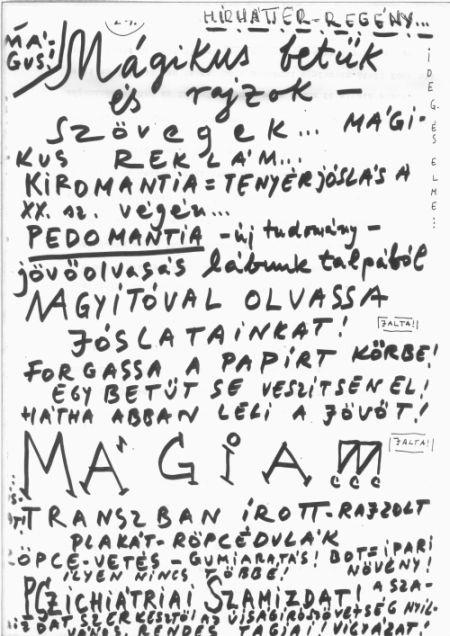 HÍRHÁTTER-REGÉNY...
MÁ-
GUS!
Mágikus betűk
és rajzok —
Szövegek... MÁGI-
KUS REKLÁM...
IDEG- ÉS ELME...
KIROMANTIA = TENYÉRJÓSLÁS A
XX. sz. végén...
PEDOMANTIA - új tudomány -
jövőolvasás lábunk talpából
NAGYÍTÓVAL OLVASSA
JÓSLATAINKAT!
JALTA!
FORGASSA A PAPÍRT KÖRBE!
EGY BETŰT SE VESZÍTSEN EL!
HÁTHA ABBAN LELI A JÖVŐT!
MÁGIA
JALTA!
TRANSZBAN ÍROTT-RAJZOLT
PLAKÁT-RÖPCÉDULÁK
KÖPCÉ-VETÉS - GUMIARATÁS! BOT = IPARI
NÖVÉNY!
ILYEN NINCS TÖBBÉ!
PCZICHIÁTRIAI SZAMIZDAT! A SZA-
MIZDAT SZERKESZTŐI AZ ÚJSÁGÍRÓSZÖVETSÉG NYIL-
VÁNOS, RENDES TAGJAI! VIGYÁZAT!